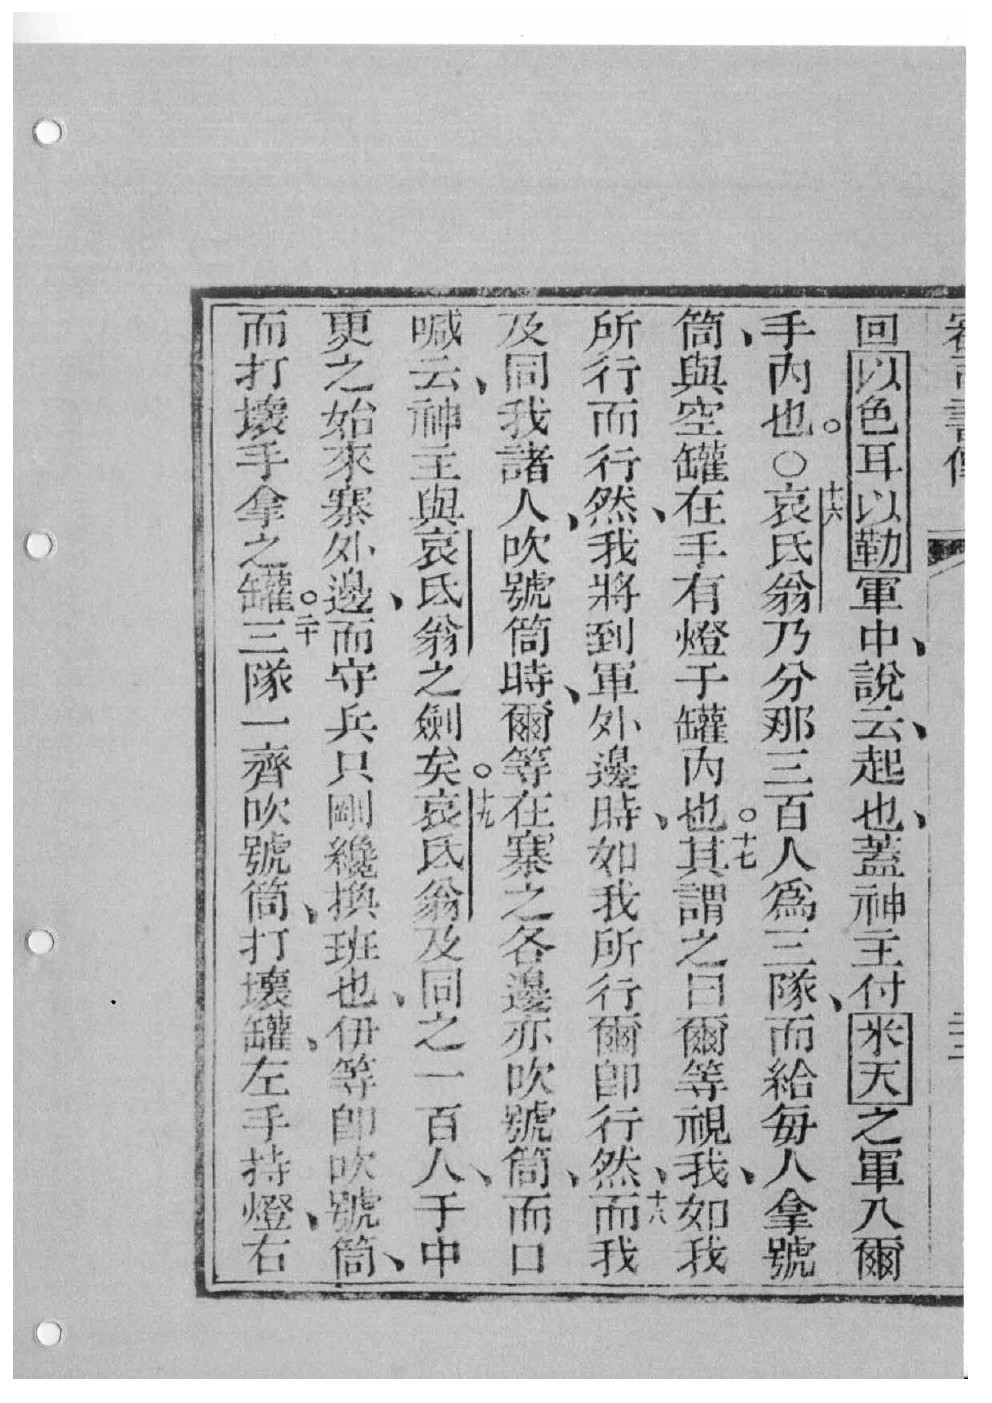 回以色耳以勒軍中、說云、起也、蓋神主付米天之軍入爾
手內也。○十六哀氐翁乃分那三百人為三隊、而給每人拿號
筒、與空罐在手有燈于罐內也。十七其謂之曰爾等視我、如我
所行而行然、我將到軍外邊時、如我所行爾即行然、十八而我
及同我諸人、吹號筒時、爾等在寨之各邊亦吹號筒、而口
喊云、神主與哀氐翁之劍矣。十九哀氐翁及同之一百人、于中
更之始來寨外邊、而守兵只剛纔換班也、伊等即吹號筒、
而打壞手拿之罐。二十三隊一齊吹號筒、打壞罐、左手持燈、右